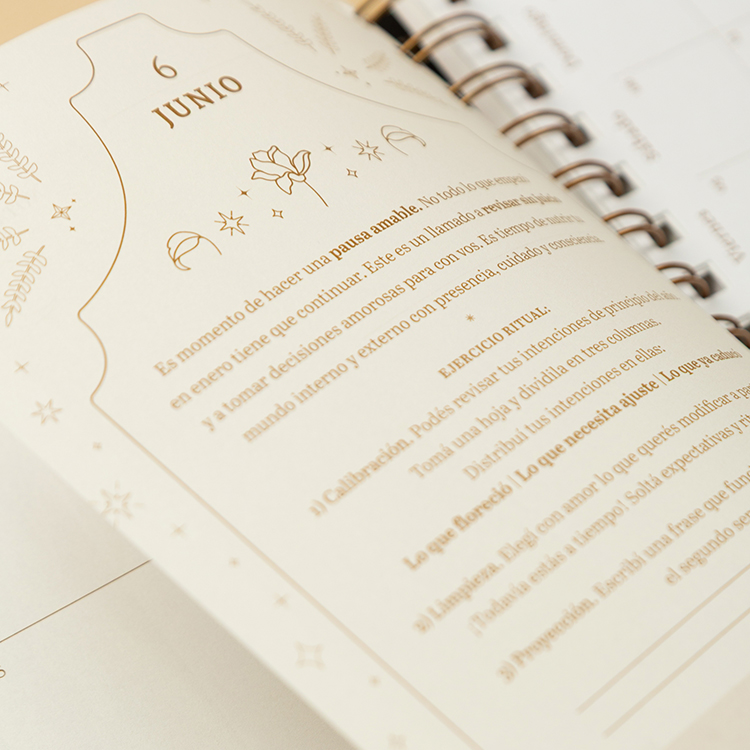 6
JUNIO
Es momento de hacer una pausa amable. No todo lo que empezó
en enero tiene que continuar. Este es un llamado a revisar sin juicio
y a tomar decisiones amorosas para con vos. Es tiempo de nutrir tu
mundo interno y externo con presencia, cuidado y consciencia.
EJERCICIO RITUAL:
1) Calibración. Podés revisar tus intenciones de principio del año.
Tomá una hoja y dividila en tres columnas.
Distribuí tus intenciones en ellas:
Lo que floreció | Lo que necesita ajuste | Lo que ya caducó
2) Limpieza. Elegí con amor lo que querés modificar a
¡Todavía estás a tiempo! Soltá expectativas y
3) Proyección. Escribí una frase que
el segundo
Domingo
Sábado
Viernes